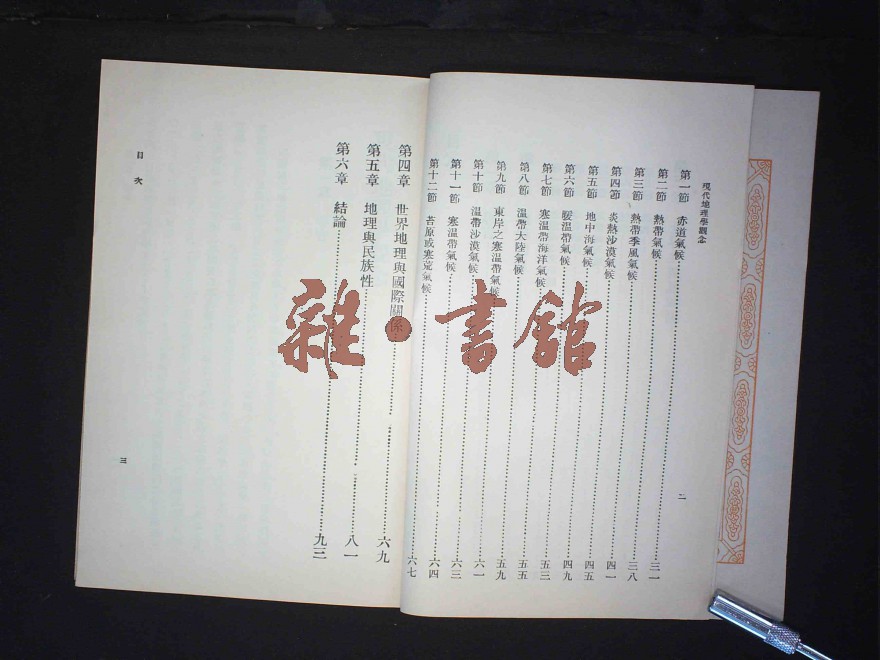 現代地理學觀念
第一節 赤道氣候 三一
第二節 熱帶氣候 三一
第三節 熱帶季風氣候 三八
第四節 炎熱沙漠氣候 四一
第五節 地中海氣候 四五
第六節 暖溫帶氣候 四九
第七節 寒溫帶海洋氣候 五三
第八節 溫帶大陸氣候 五五
第九節 東岸之寒溫帶氣候 五九
第十節 溫帶沙漠氣候 六一
第十一節 寒溫帶氣候 六三
第十二節 苔原或寒荒氣候 六四
六七
二
第四章 世界地理與國際關係 六九
第五章 地理與民族性 八一
第六章 結論 九三
目次
三
雜·書館